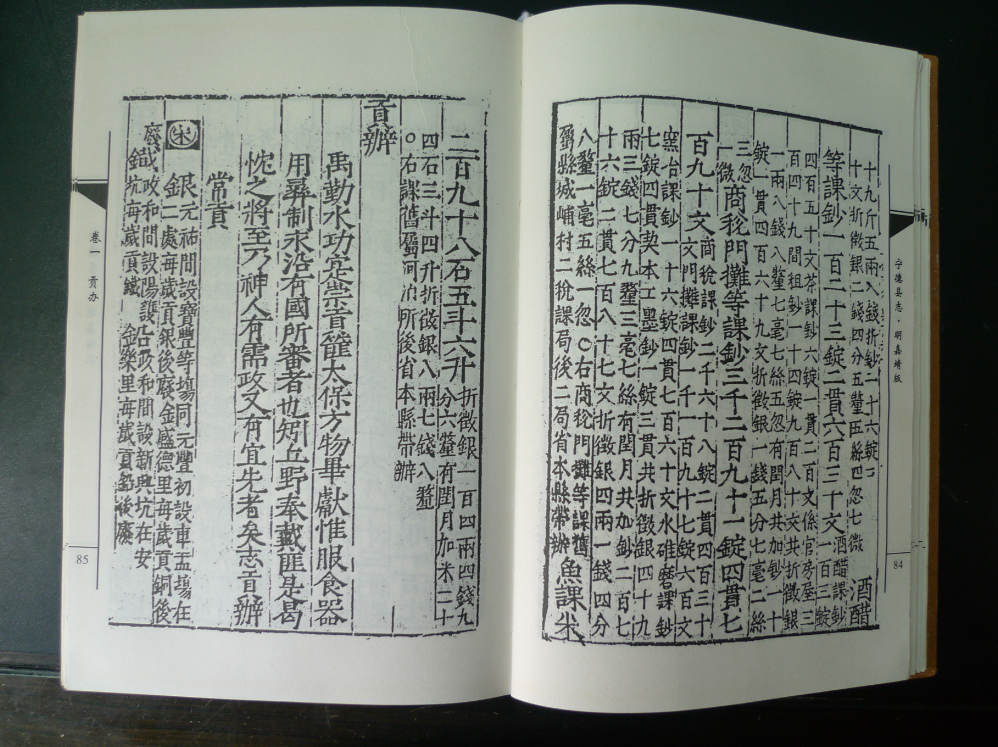 宁德县志·明嘉靖版
十九斤五兩入錢折鈔二十六錠
十文折徵銀二錢四分五釐五絲八忽七微 酒醋
等課鈔一百二十三錠二貫六百三十文 酒醋課鈔一百三錠
四百五十文茶課鈔六錠一貫二百文係官房屋三
百四十九間租鈔一十四錠九百八十文共折徵銀
一兩八錢八釐七毫七絲五忽有閏月共加鈔一十
錠一貫四百六十九文折徵銀一錢五分七毫二絲
三忽一微 商稅門攤等課鈔三千二百九十一錠四貫七
百九十文 商稅課鈔二千六十八錠二貫四百三十
文門攤課鈔一千一百九十七錠六百文
窯冶課鈔一十六錠四貫七百六十文水碓磨課鈔
七錠四貫契本工墨鈔一錠三貫共折徵銀四十九
兩三錢七分九釐三毫七絲有閏月共加鈔二百七
十六錠二貫七百八十七文折徵銀四兩一錢四分
八釐一毫五絲一忽○右商稅門攤等課舊
屬縣城峬村二稅課局後二局省本縣帶辦 魚課米
84
二百九十八石五斗六升 折徵銀一百四兩四錢九
分六釐有閏月加米二十
四石三斗四升折徵銀八兩七錢八釐
○右課舊屬河泊所後省本縣帶辦
貢辦
禹勤水功定崇貢篚太保方物畢獻惟服食器
用尋制求沿有國所審者也矧丘野奉戴匪是曷
忱之將至乃神人有需政又有宜先者矣志貢辦
常貢
宋 銀 元祐間設寶豐等場同元豐初設車盂場在
銀二處每歲貢銀後廢金盛德里每歲貢銅後
廢鐵 政和間設陽護沿政和間設新興坑在安
坑每歲貢鐵 金樂里每歲貢鉛後廢
卷一 贡办
85